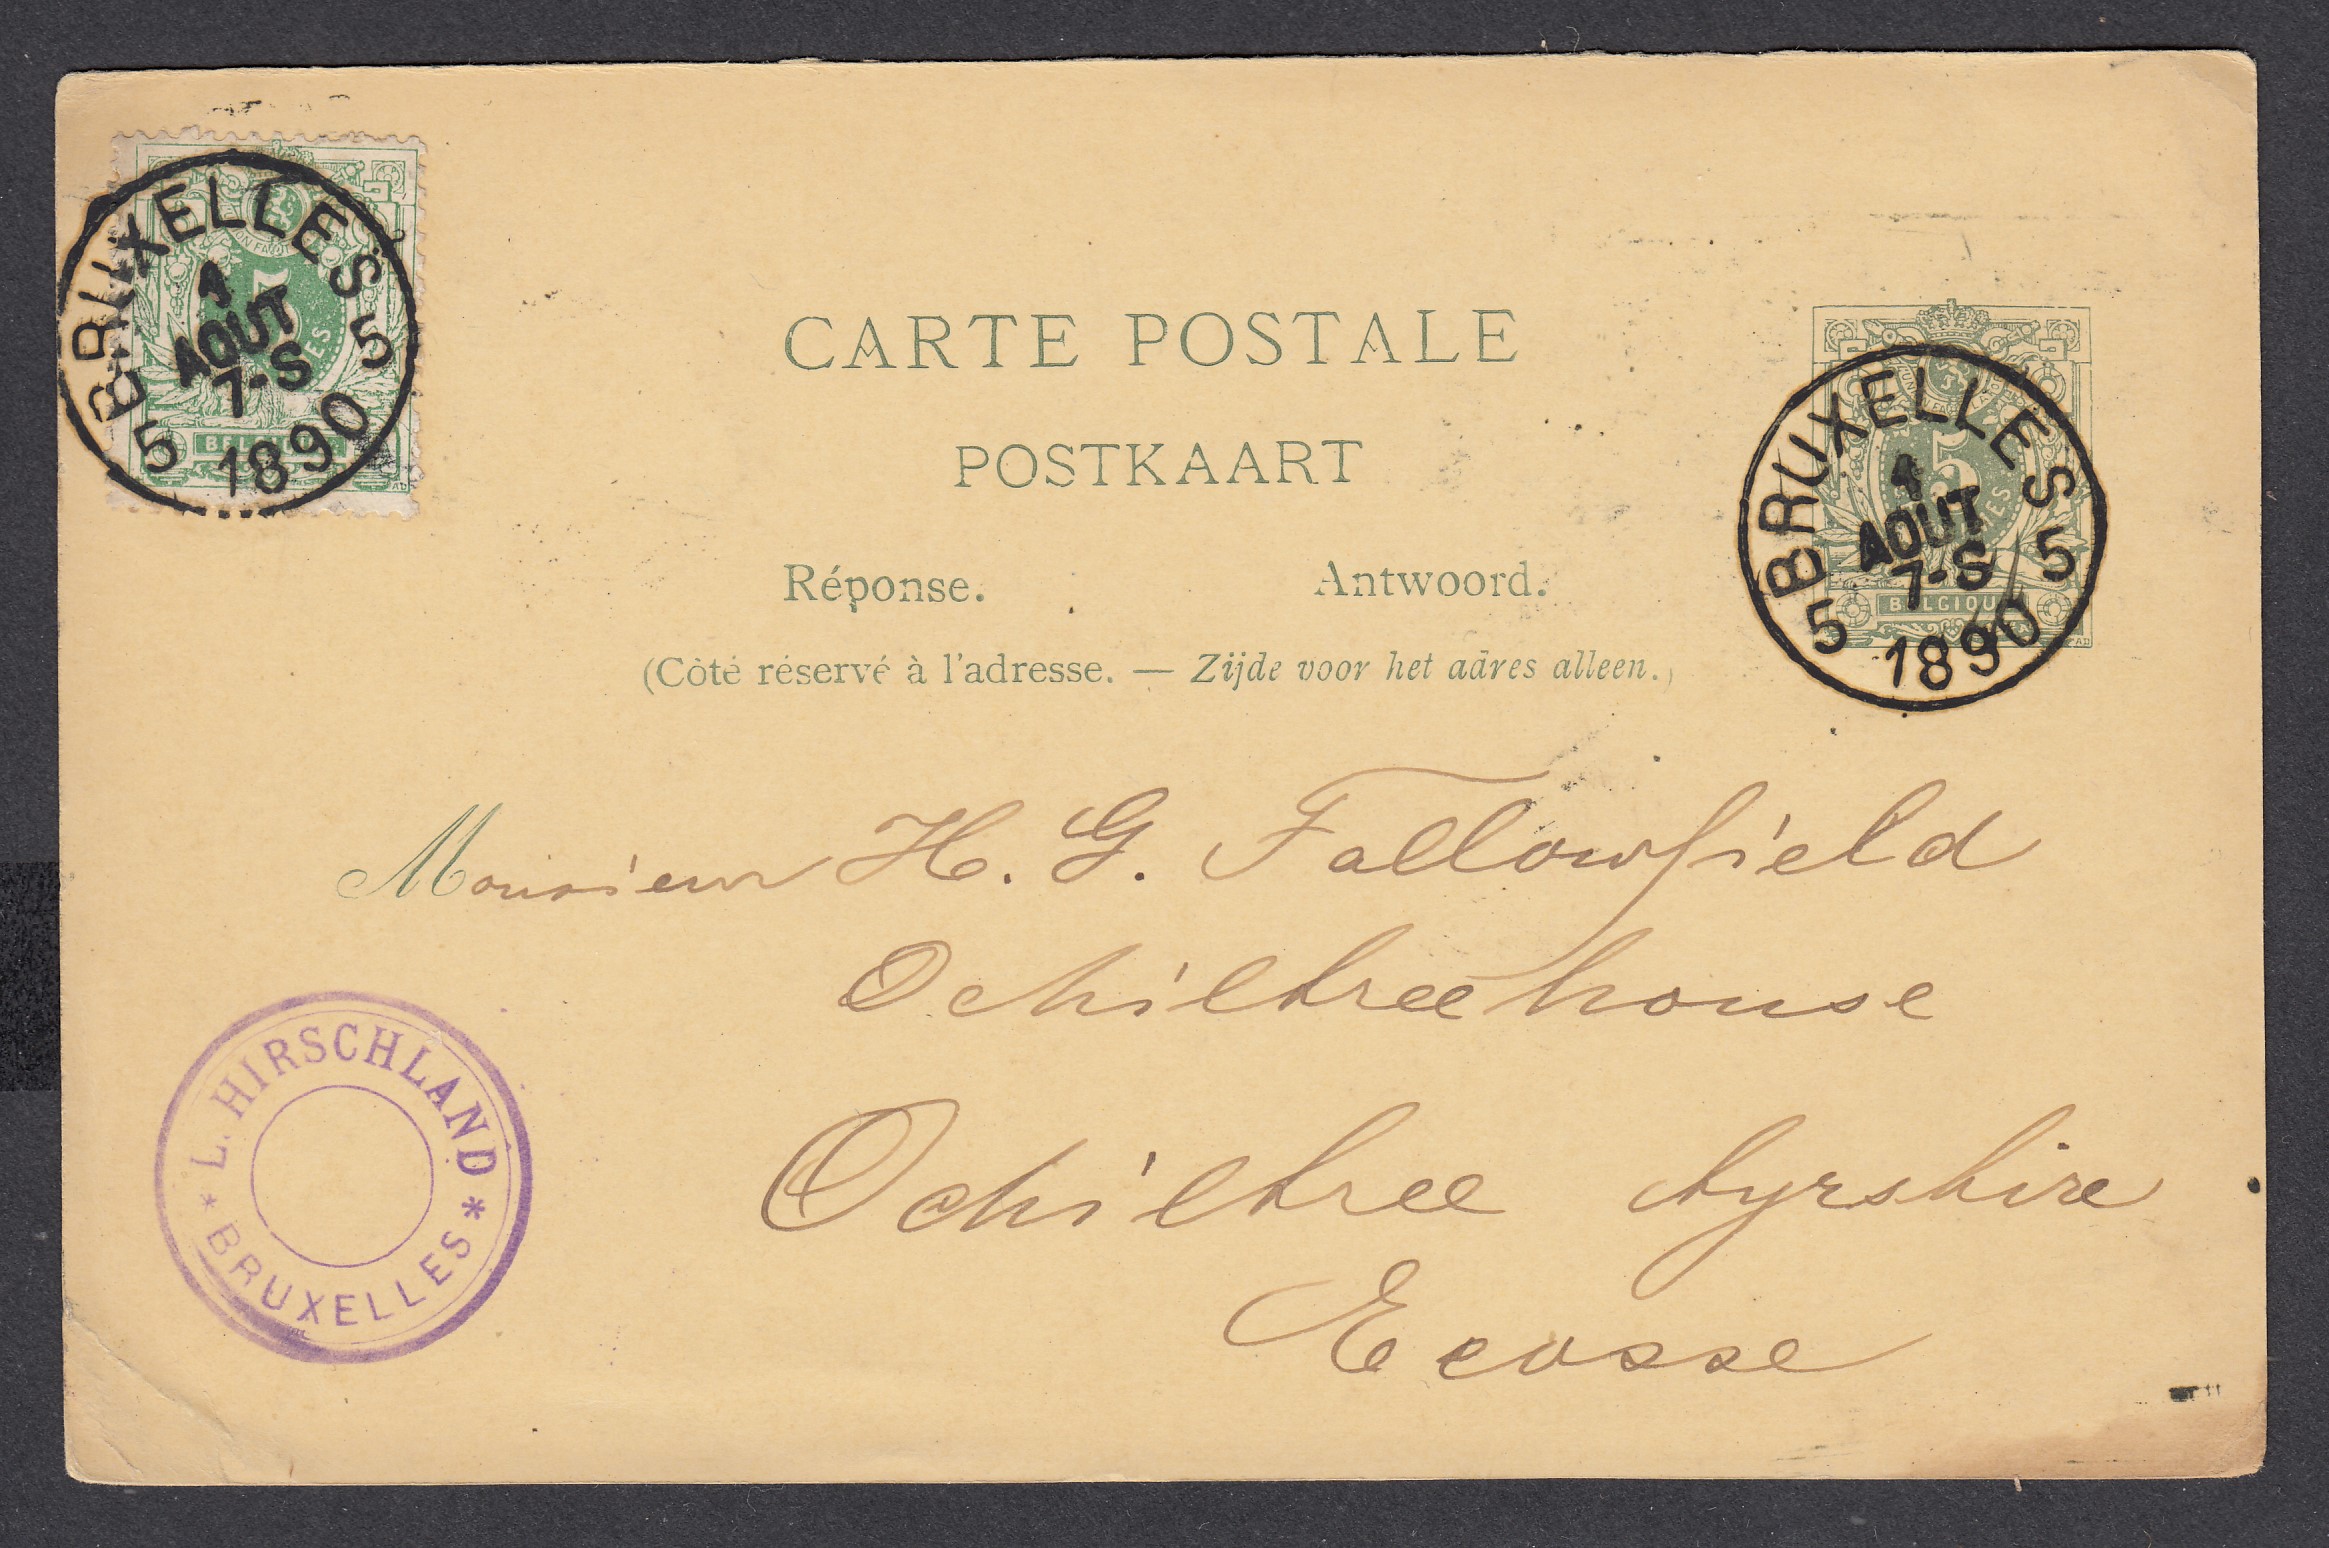 BRUXELLES
5 1890 5
1
AOUT
7-S
5
BELGIQUE
CARTE POSTALE
POSTKAART
Réponse. Antwoord.
(Côté réservé à l'adresse. — Zijde voor het adres alleen.)
BRUXELLES
5 1890 5
1
AOUT
7-S
5
BELGIQUE
Monsieur H. G. Fallowfield
Ochiltree house
Ochiltree Ayrshire
Ecosse
L. HIRSCHLAND
* BRUXELLES *